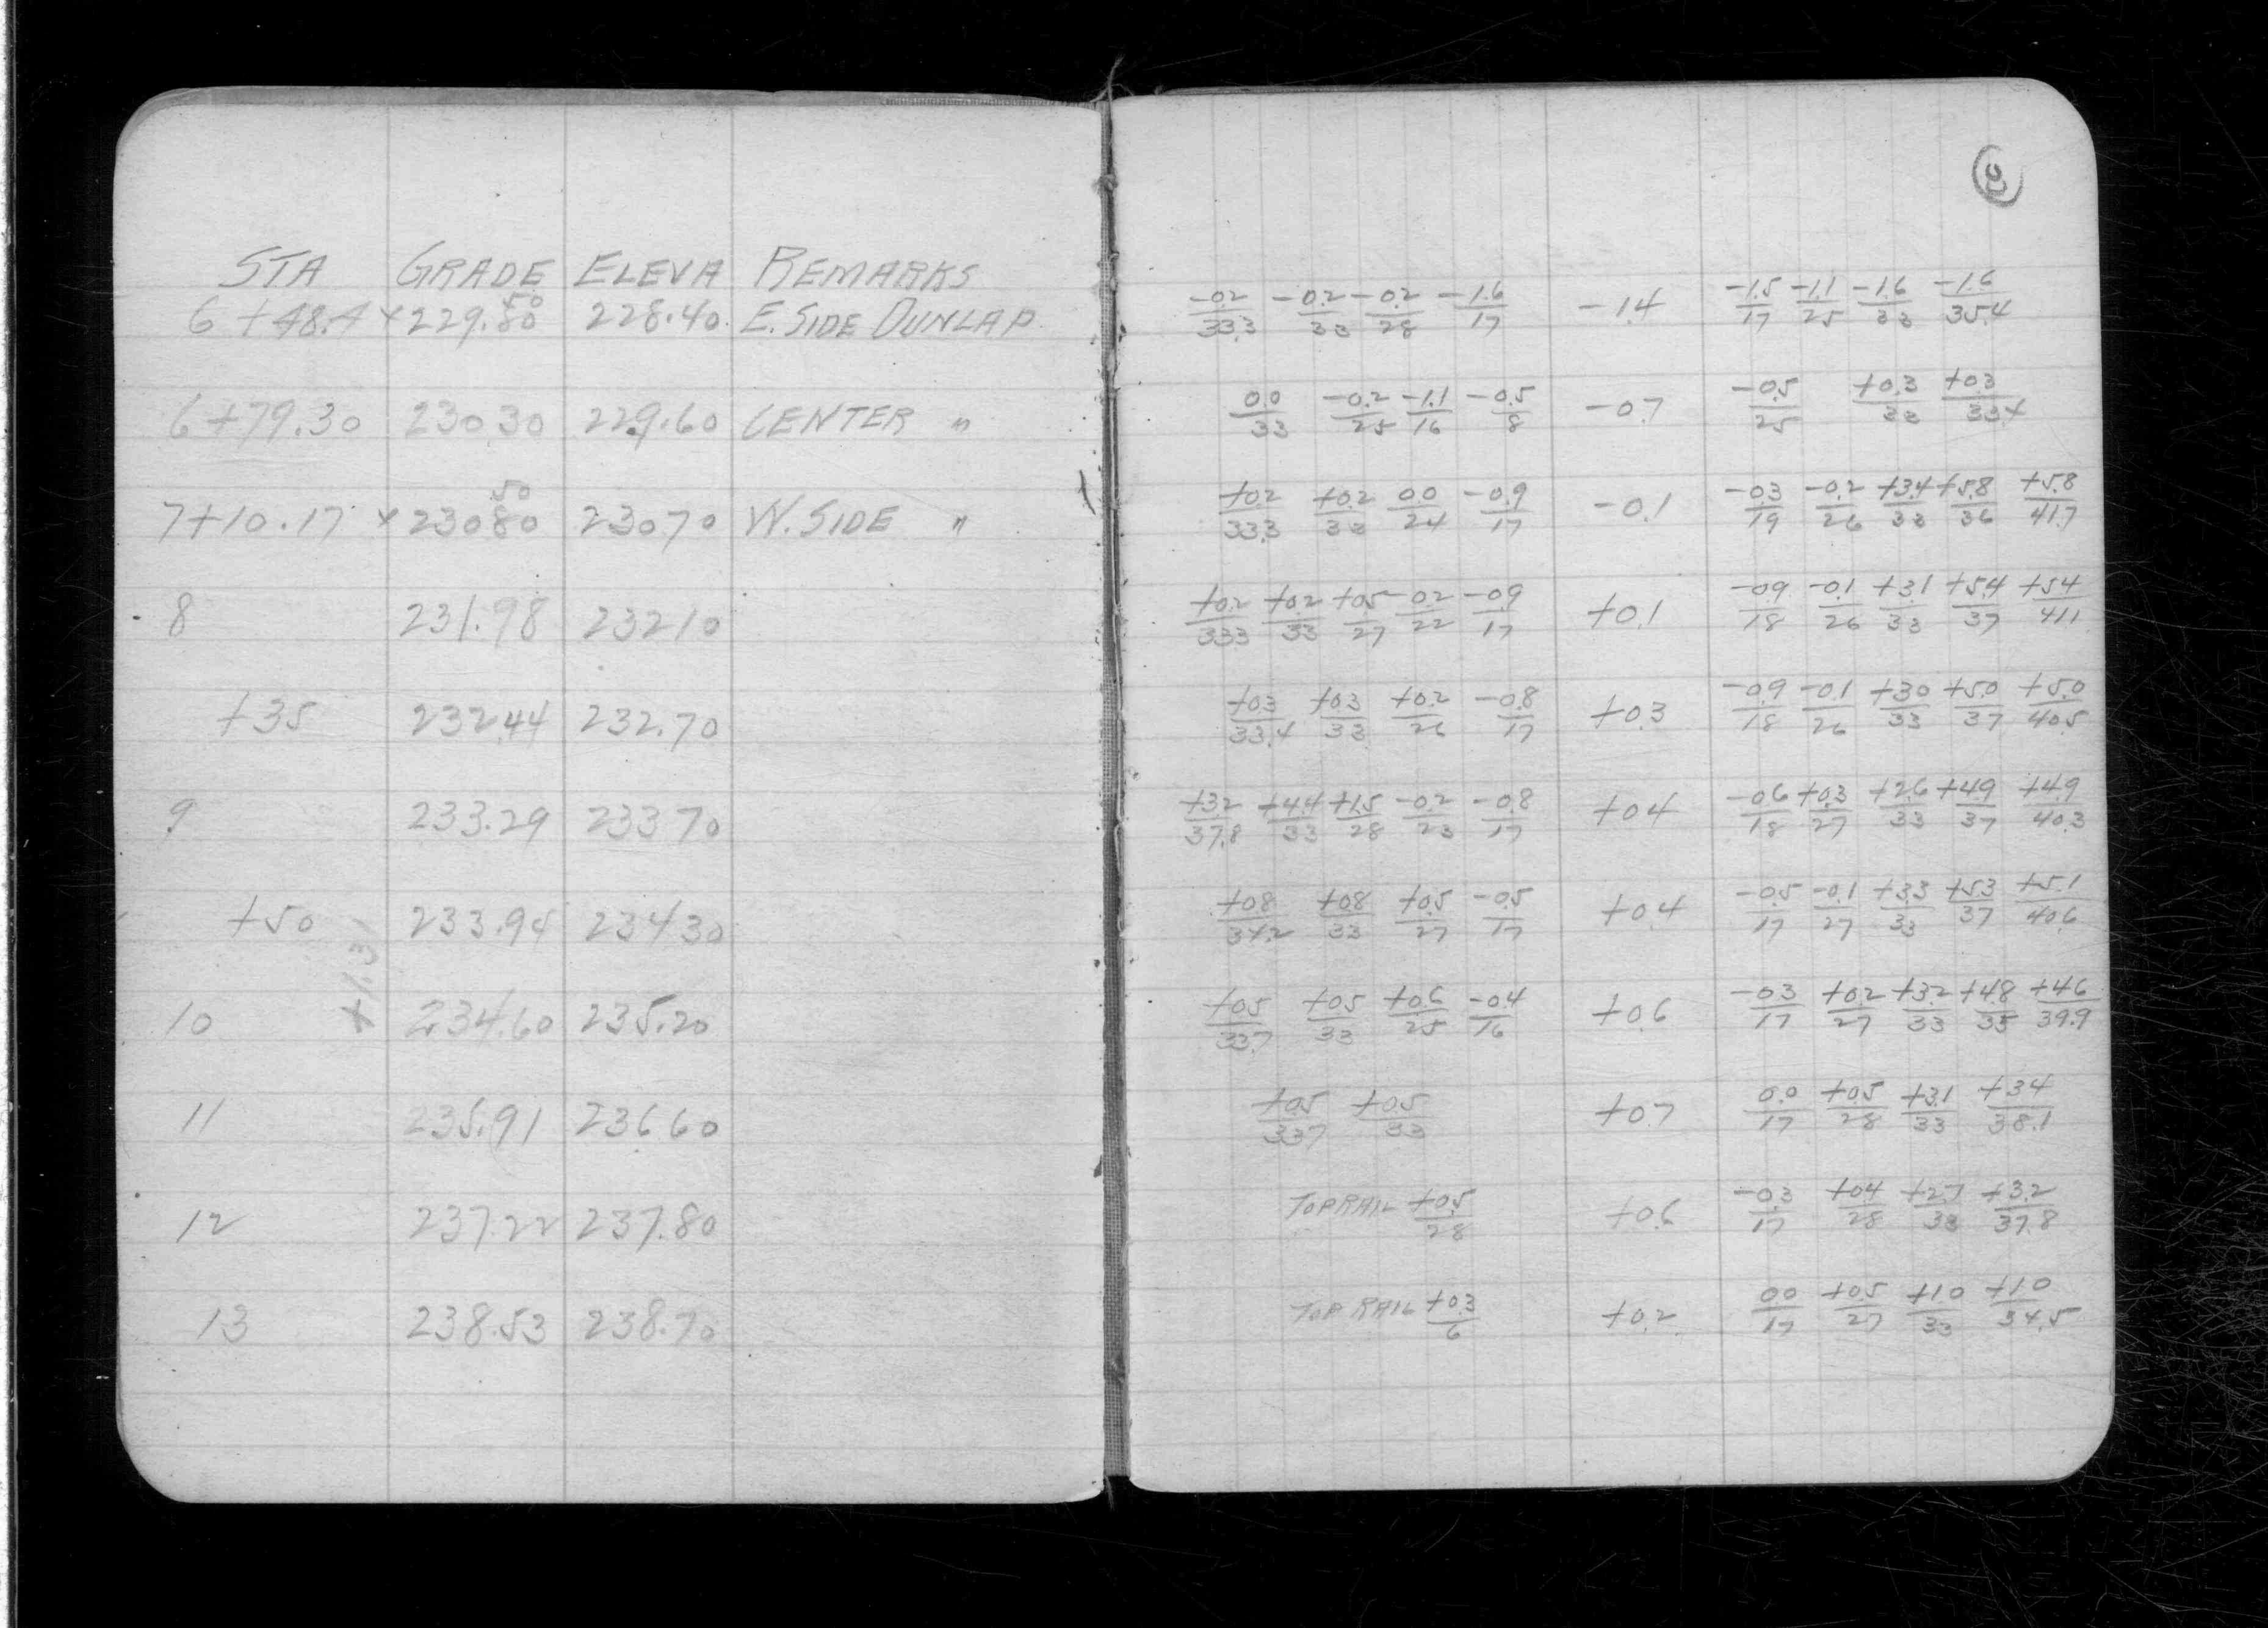 STA GRADE ELEVA REMARKS
50
6 +48.4 × 229.80 228.40 E. SIDE DUNLAP
6+79.30 230 30 229.60 CENTER "
50
7+10.17 × 230 80 230 70 W. SIDE "
8 231.98 232 10
+35 232.44 232.70
9 233.29 233 70
+50 233.95 234 30
+1.31
10 234.60 235.20
11 235.91 236 60
12 237.22 237.80
13 238.53 238.70
-0.2/33.3 -0.2/33 -0.2/28 -1.6/17 -1.4 -1.5/17 -1.1/25 -1.6/33 -1.6/35.4
0.0/33 -0.2/25 -1.1/16 -0.5/8 -0.7 -0.5/25 +0.3/33 +0.3/33.4
+0.2/33.3 +0.2/33 0.0/24 -0.9/17 -0.1 -0.3/19 -0.2/26 +3.4/33 +5.8/36 +5.8/41.7
+0.2/333 +0.2/33 +0.5/27 -0.2/22 -0.9/17 +0.1 -0.9/18 -0.1/26 +3.1/33 +5.4/37 +5.4/41.1
+0.3/33.4 +0.3/33 +0.2/26 -0.8/17 +0.3 -0.9/18 -0.1/26 +3.0/33 +5.0/37 +5.0/40.5
+3.2/37.8 +4.4/33 +1.5/28 -0.2/23 -0.8/17 +0.4 -0.6/18 +0.3/27 +2.6/33 +4.9/37 +4.9/40.3
+0.8/34.2 +0.8/33 +0.5/27 -0.5/17 +0.4 -0.5/17 -0.1/27 +3.3/33 +5.3/37 +5.1/40.6
+0.5/33.7 +0.5/33 +0.6/25 -0.4/16 +0.6 -0.3/17 +0.2/27 +3.2/33 +4.8/35 +4.6/39.9
+0.5/337 +0.5/33 +0.7 0.0/17 +0.5/28 +3.1/33 +3.4/38.1
TOP RAIL +0.5/28 +0.6 -0.3/17 +0.4/28 +2.7/33 +3.2/37.8
TOP RAIL +0.3/6 +0.2 0.0/17 +0.5/27 +1.0/33 +1.0/34.5